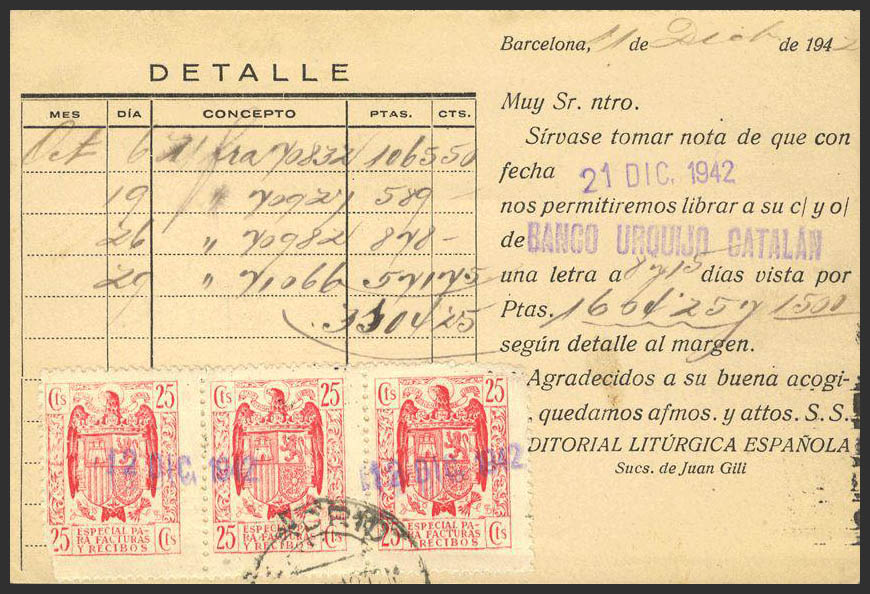 DETALLE
MES DÍA CONCEPTO PTAS. CTS.
Oct 6 N/ fra 70832 1065 50
19 " 589 -
26 " 70982 878 -
29 " 71066 571 75
3104 25
Barcelona, 11 de Dicb. de 1942
Muy Sr. ntro.
Sírvase tomar nota de que con
fecha 21 DIC. 1942
nos permitiremos librar a su c/ y o/
de BANCO URQUIJO CATALÁN
una letra a 8 y 15 días vista por
Ptas. 1604'25 y 1500
según detalle al margen.
Agradecidos a su buena acogi-
quedamos afmos. y attos. S.S.
DITORIAL LITÚRGICA ESPAÑOLA
Sucs. de Juan Gili
Cts 25 Cts 25 Cts 25
12 DIC. 1942 12 DIC. 1942
ESPECIAL PA-
RA FACTURAS
Y RECIBOS
25 Cts
ESPECIAL PA-
RA FACTURAS
Y RECIBOS
25 Cts
ESPECIAL PA-
RA FACTURAS
Y RECIBOS
25 Cts